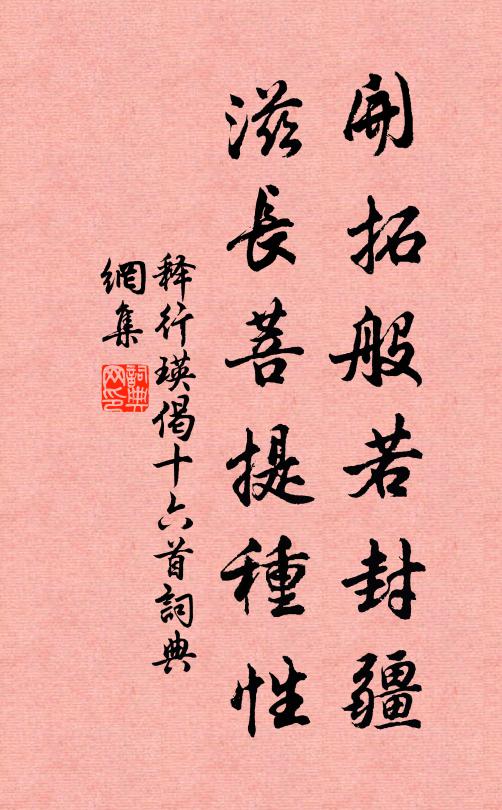 開拓般若封疆
滋長菩提種性
释行瑛偈十六首詞典
網集
詞典網印